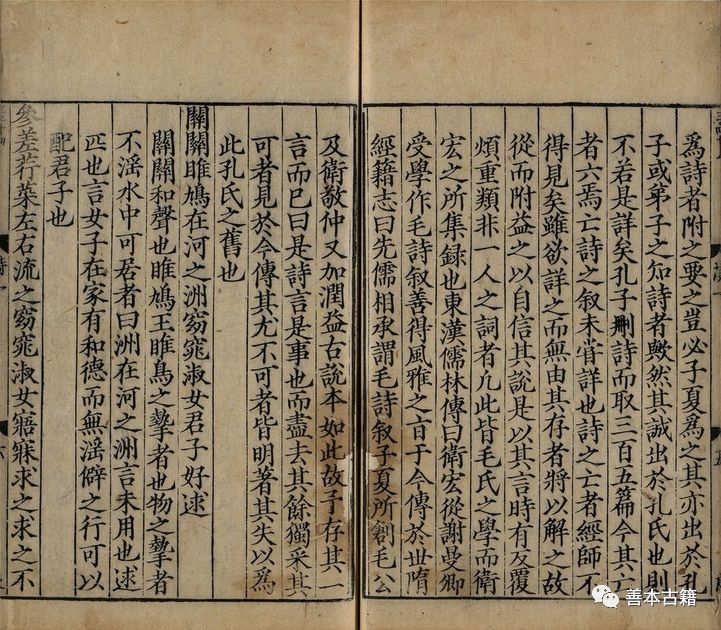 爲詩者附之要之豈必子夏爲之其亦出於孔
子或弟子之知詩者歟然其誠出於孔氏也則
不若是詳矣孔子刪詩而取三百五篇今其亡
者六焉亡詩之叙未嘗詳也詩之亡者經師不
得見矣雖欲詳之而無由其存者將以解之故
從而附益之以自信其說是以其言時有反覆
煩重類非一人之詞者凡此皆毛氏之學而衛
宏之所集録也東漢儒林傳曰衛宏從謝曼卿
受學作毛詩叙善得風雅之旨于今傳於世隋
經籍志曰先儒相承謂毛詩叙子夏所創毛公
及衛敬仲又加潤益古說本如此故予存其一
言而已曰是詩言是事也而盡去其餘獨采其
可者見於今傳其尤不可者皆明著其失以爲
此孔氏之舊也
關關雎鳩在河之洲窈窕淑女君子好逑
關關和聲也雎鳩王雎鳥之摯者也物之摯者
不淫水中可居者曰洲在河之洲言未用也逑
匹也言女子在家有和德而無淫僻之行可以
配君子也
參差荇菜左右流之窈窕淑女寤寐求之求之不
詩一
六
善本古籍